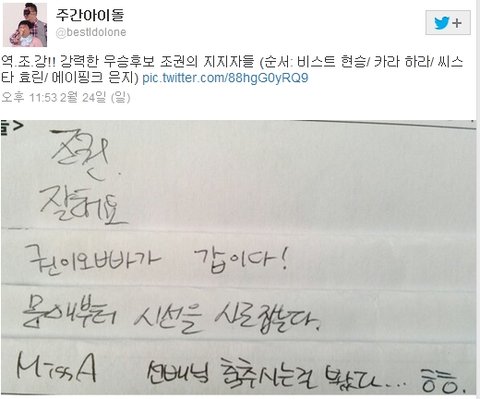 주간아이돌
@bestidolone
역.조.강!! 강력한 우승후보 조권의 지지자들 (순서: 비스트 현승/ 카라 하라/ 씨스
타 효린/ 에이핑크 은지) pic.twitter.com/88hgG0yRQ9
오후 11:53 2월 24일 (일)
>
조권.
잘해요
권이오빠가 갑이다!
몸매부터 시선을 사로잡는다.
MissA 선배님 춤추시는걸 봤다... ㅎㅎ.